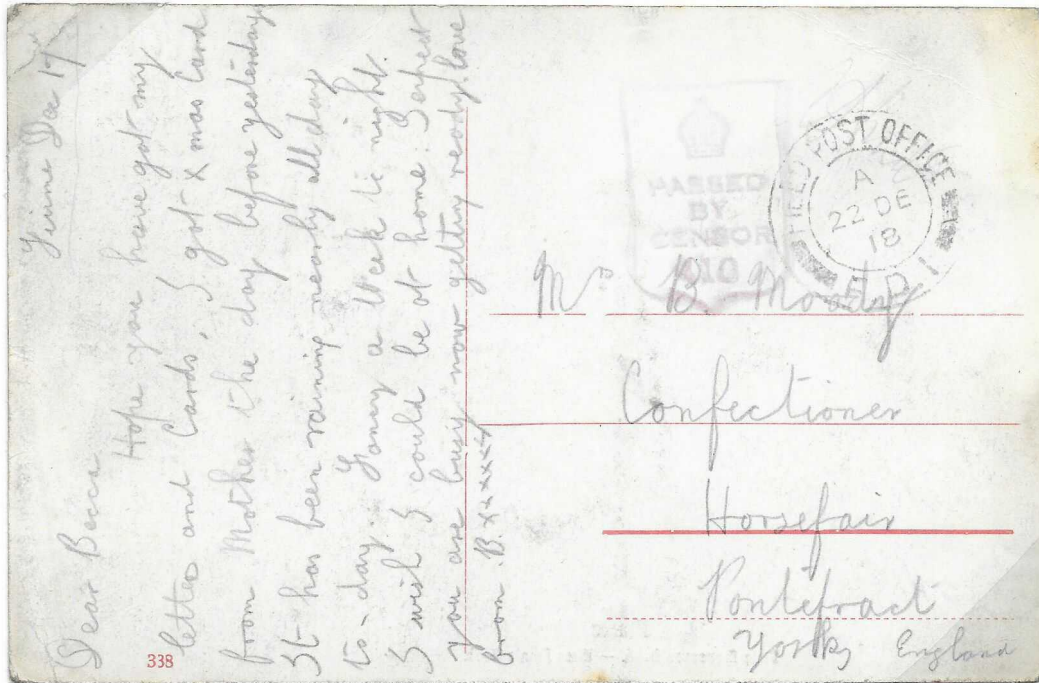 Fiume Dec 17th
Dear Becca
Hope you have got my
letters and Cards, I got Xmas Card
from Mother the day before yesterday
It has been raining nearly all day
to-day. Fancy a week to night.
I wish I could be at home. I expect
you are busy now getting ready, love
from B. xxxxxx
338
PASSED
BY
CENSOR
FIELD POST OFFICE
A
22 DE
18
Mrs B. Moody
Confectioner
Horsefair
Pontefract
Yorks England